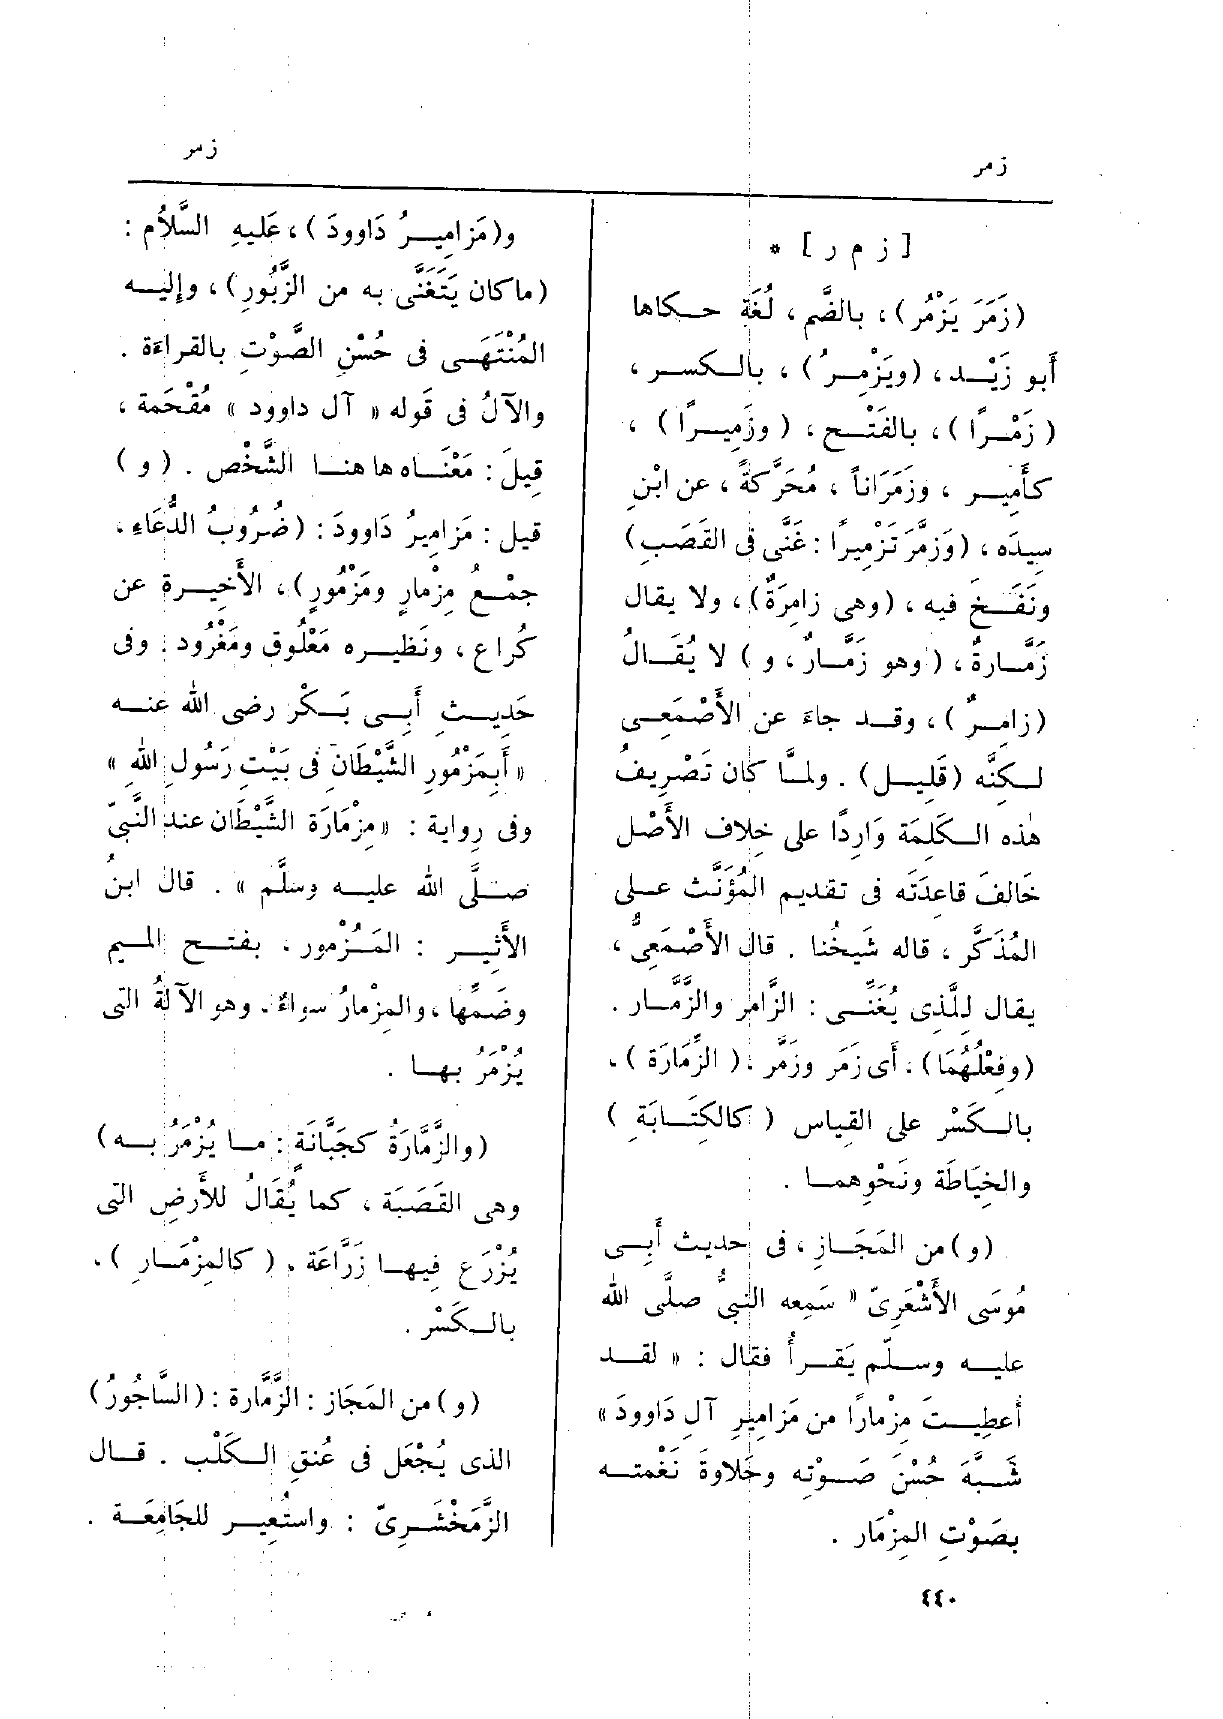 زمر
زمر
[ ز م ر ] *
(زَمَرَ يَزْمُر)، بالضَّم، لُغَة حكاها
أبو زَيْد، (ويَزْمِرُ)، بالكسر،
(زَمْرًا)، بالفَتْح، (وزَمِيرًا)،
كأَمِير، وزَمَرَاناً، مُحَرَّكةً، عن ابْنِ
سِيدَه، (وَزمَّرَ تَزْمِيرًا : غَنَّى فى القَصَبِ)
ونَفَخَ فيه، (وهى زامِرَةٌ)، ولا يقال
زَمَّارةٌ، (وهو زَمَّارٌ، و) لا يُقَالُ
(زامِرٌ)، وقد جاءَ عن الأَصْمَعِى
لكِنَّه (قَلِيل). ولمَّا كان تَصْرِيفُ
هٰذه الكَلِمَة وَارِدًا على خِلاف الأَصْل
خَالفَ قاعدَتَه فى تقديم المُؤَنَّث على
المُذَكَّر، قاله شَيخُنا . قال الأَصْمَعِىُّ،
يقال لِلَّذِى يُغَنِّى : الزَّامِر والزَّمَّار .
(وفِعْلُهُمَا)، أَى زَمَر وزَمَّر ، (الزِّمَارَة)،
بالكَسْر على القياس (كالكِتَابَةِ)
والخِيَاطَة ونَحْوِهما .
(و) من المَجَازِ، فى حديث أَبِى
مُوسَى الأَشْعَرِىّ « سَمِعه النبىُّ صلَّى الله
عليه وسلّم يَقرأُ فقال : « لقد
أُعطِيتَ مِزْمارًا من مَزامِيرِ آلِ دَاوودَ»
شَبَّهَ حُسْنَ صَوْتِه وحَلاوةَ نَغْمتِه
بصَوْتِ المِزْمَار .
و(مَزامِيرُ دَاوودَ)، عَلَيهِ السَّلَامُ :
(ما كان يَتَغَنَّى به من الزَّبُورِ)، وإليه
المُنْتَهَى فى حُسْنِ الصَّوْتِ بالقراءَة .
والآلُ فى قَوله « آل داوود » مُقْحَمة،
قِيلَ : مَعْنَاه هاهنا الشَّخْص . (و)
قيل : مَزامِيرُ دَاوودَ : (ضُرُوبُ الدُّعَاءِ،
جمْع مِزْمارٍ ومَزْمُورٍ)، الأَخِيرة عن
كُراع، ونَظيره مَعْلُوق ومَغْرُود . وفى
حَدِيثِ أَبِى بَكْر رضى الله عنه
« أَبِمَزْمُورِ الشَّيْطَانِ فى بَيْتِ رَسُولِ اللهِ »
وفى رِواية : « مِزْمَارَة الشَّيْطَان عند النَّبىّ
صلَّى الله عليه وسلَّم » . قال ابنُ
الأَثِير : المَزْمور، بفتح الميم
وضَمِّها، والمِزْمارُ سواءٌ. وهو الآلةُ التى
يُزْمَرُ بها .
(والزَّمَّارَةُ كجَبَّانَةٍ : ما يُزْمَرُ به)
وهى القَصَبَة، كما يُقَالُ للأَرضِ التى
يُزْرَع فِيها زَرَّاعَة، (كالمِزْمَارِ)،
بالكَسْر .
(و) من المَجَاز : الزَّمَّارة : (السَّاجُورُ)
الذى يُجْعَل فى عُنقِ الكَلْب . قال
الزَّمَخْشَرِىّ : واستُعِير للجَامِعَة .
٤٤٠